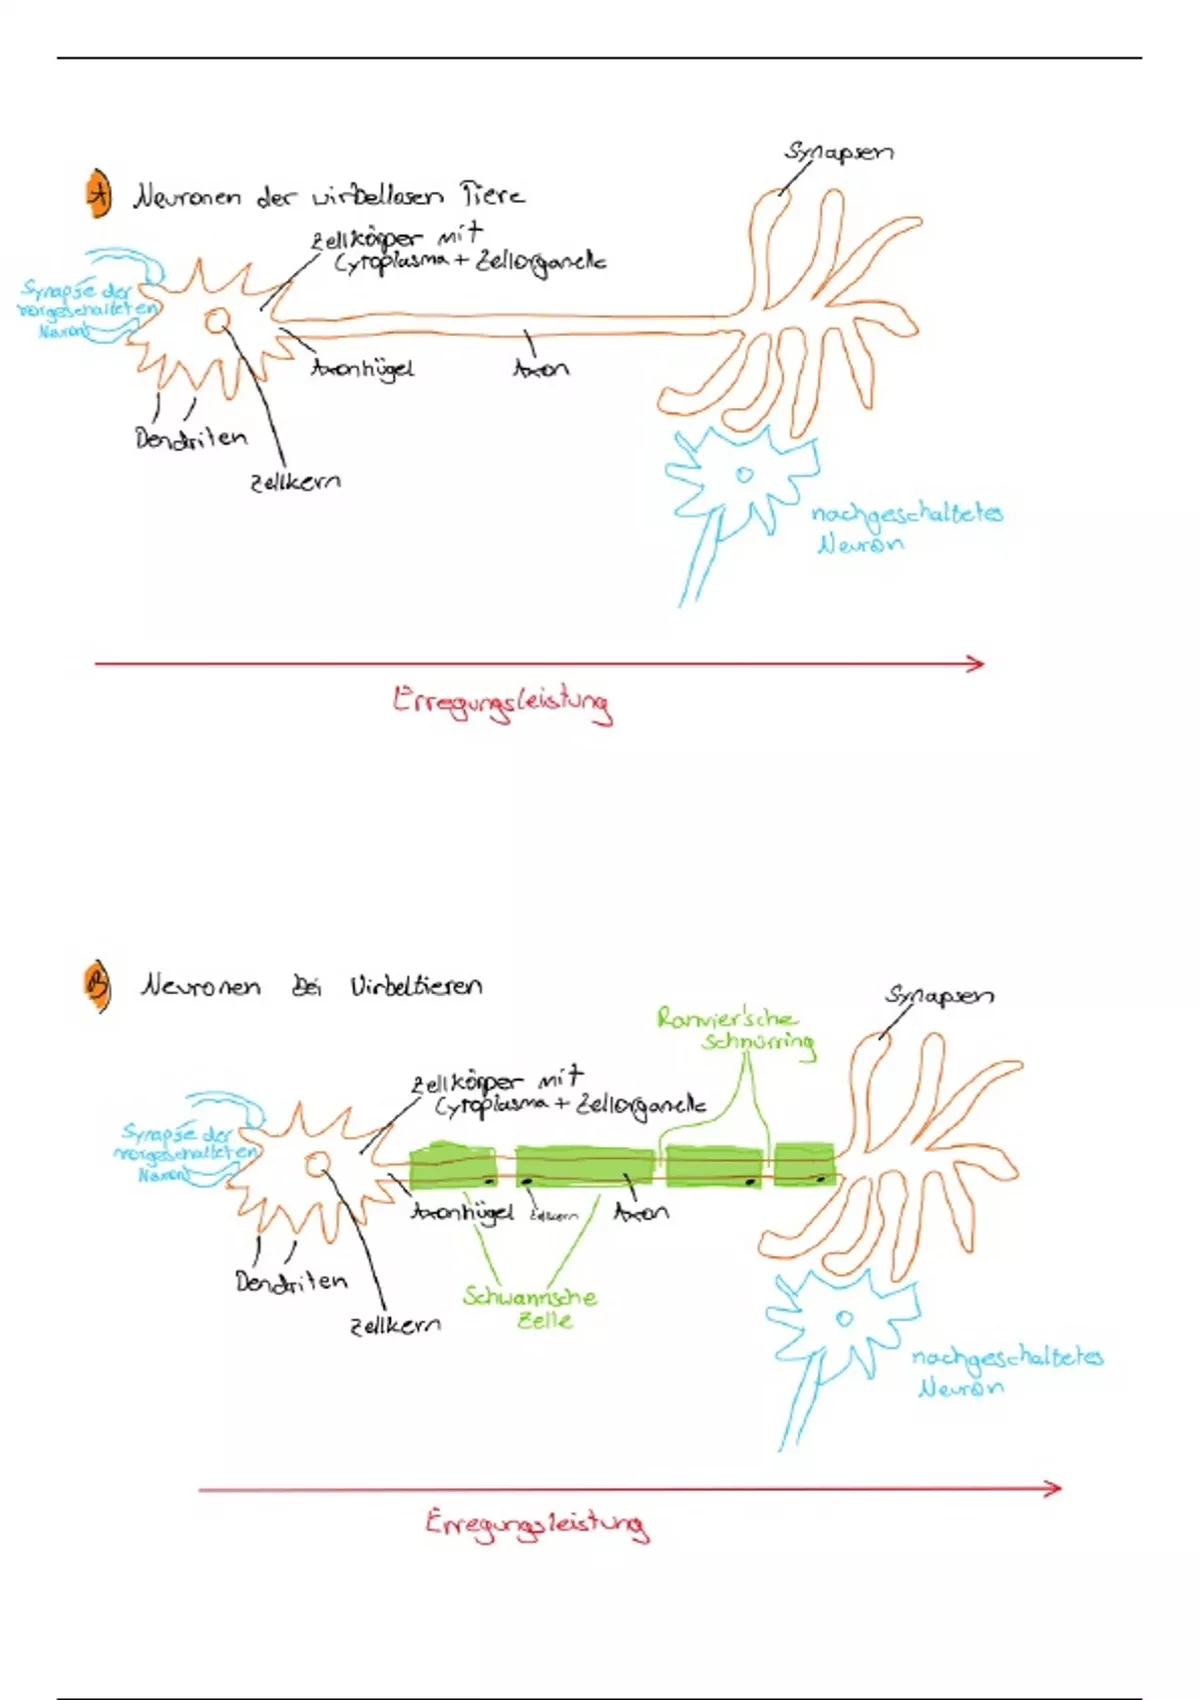 A Neuronen der wirbellosen Tiere
Synapsen
Zellkörper mit
Cytoplasma + Zellorganelle
Synapse der
vorgeschalteten
Neurons
Axonhügel
Axon
Dendriten
Zellkern
nachgeschaltetes
Neuron
Erregungsleistung
B Neuronen bei Wirbeltieren
Synapsen
Ranvier'sche
Schnürring
Zellkörper mit
Cytoplasma + Zellorganelle
Synapse der
vorgeschalteten
Neurons
Axonhügel
Zellkern
Axon
Dendriten
Schwannsche
Zelle
Zellkern
nachgeschaltetes
Neuron
Erregungsleistung